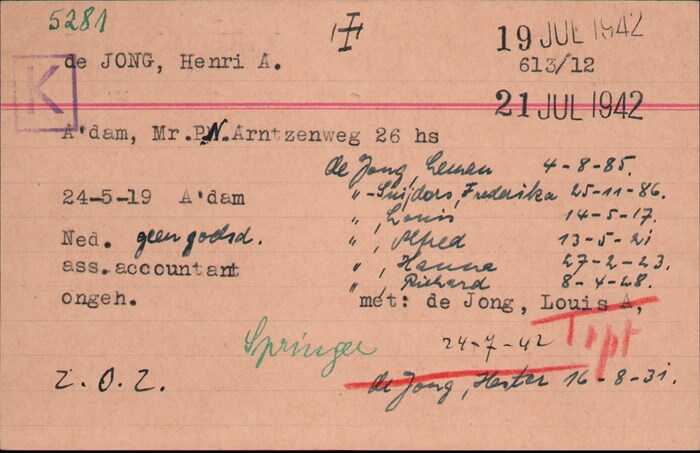 5281
19 JUL 1942
de JONG, Henri A.
613/12
K
21 JUL 1942
A'dam, Mr.P.N.Arntzenweg 26 hs
de Jong, Leman 4-8-85.
24-5-19 A'dam
"-Snijders, Frederika 25-11-86.
", Louis 14-5-17.
Ned. geen godsd.
", Alfred 13-5-21
ass.accountant
", Hanna 27-2-23.
", Richard 8-4-28.
ongeh.
met: de Jong, Louis A,
Springer
24-7-42
Tipt
Z.O.Z.
de Jong, Hester 16-8-31.